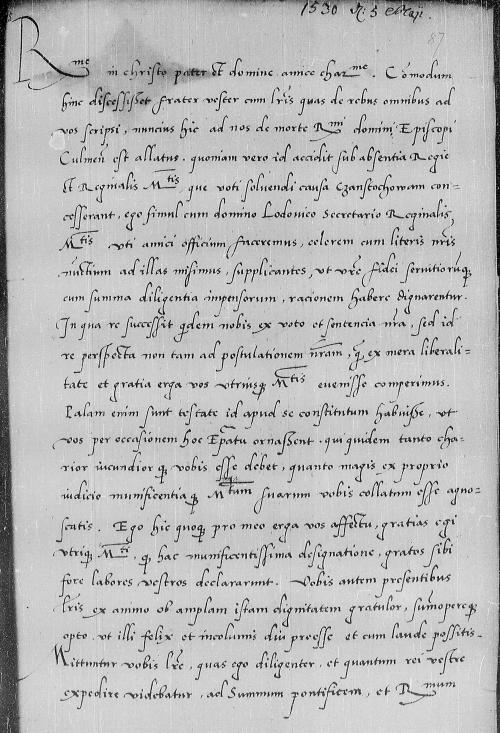 1530 5 Maij.
87
R me in christo pater et domine amice char me. Comodum
hinc discessisset frater vester cum lris quas de rebus omnibus ad
vos scripsi, nuncius hic ad nos de morte R mi domini Episcopi
Culmen est allatus, quoniam vero id accidit sub absentia Regie
et Reginalis M tis, que voti solvendi causa Czanstochowam con=
cesserant, ego simul cum domino Lodovico Secretario Reginalis
M tis uti amici officium faceremus, celerem cum literis nris
nuctium ad illas misimus, supplicantes, ut vre fidei servitiorumq
cum summa diligentia impensorum, racionem habere dignarentur.
In qua re successit qdem nobis ex voto et sentencia nra, sed id
re perspecta non tam ad postulationem nram, q ex mera liberali-
tate et gratia erga vos utriusq M tis evenisse comperimus.
Palam enim sunt testate id apud se constitutum habuisse, ut
vos per occasionem hoc Epatu ornassent. qui quidem tanto cha-
rior iucundiorq vobis esse debet, quanto magis ex proprio
iudicio munificentiaq M tum suarum vobis collatum esse agno-
scatis. Ego hic quoq pro meo erga vos affectu, gratias egi
utriq M ti, q hac munificentissima designatione, gratos sibi
fore labores vestros declararunt. Vobis autem presentibus
lris ex animo ob amplam istam dignitatem gratulor, sumopereq
opto, ut illi felix et incolumis diu preesse et cum laude possitis.
Mittuntur vobis lre, quas ego diligenter, et quantum rei vestre
expedire videbatur, ad Summum pontificem, et R mum